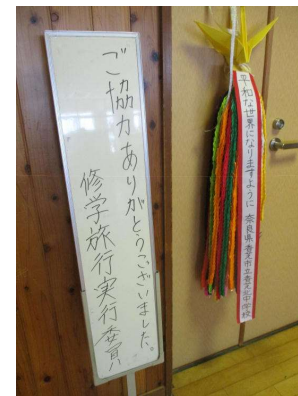 ご協力ありがとうございました。
修学旅行実行委員
平和な世界になりますように 奈良県香芝市立香芝北中学校